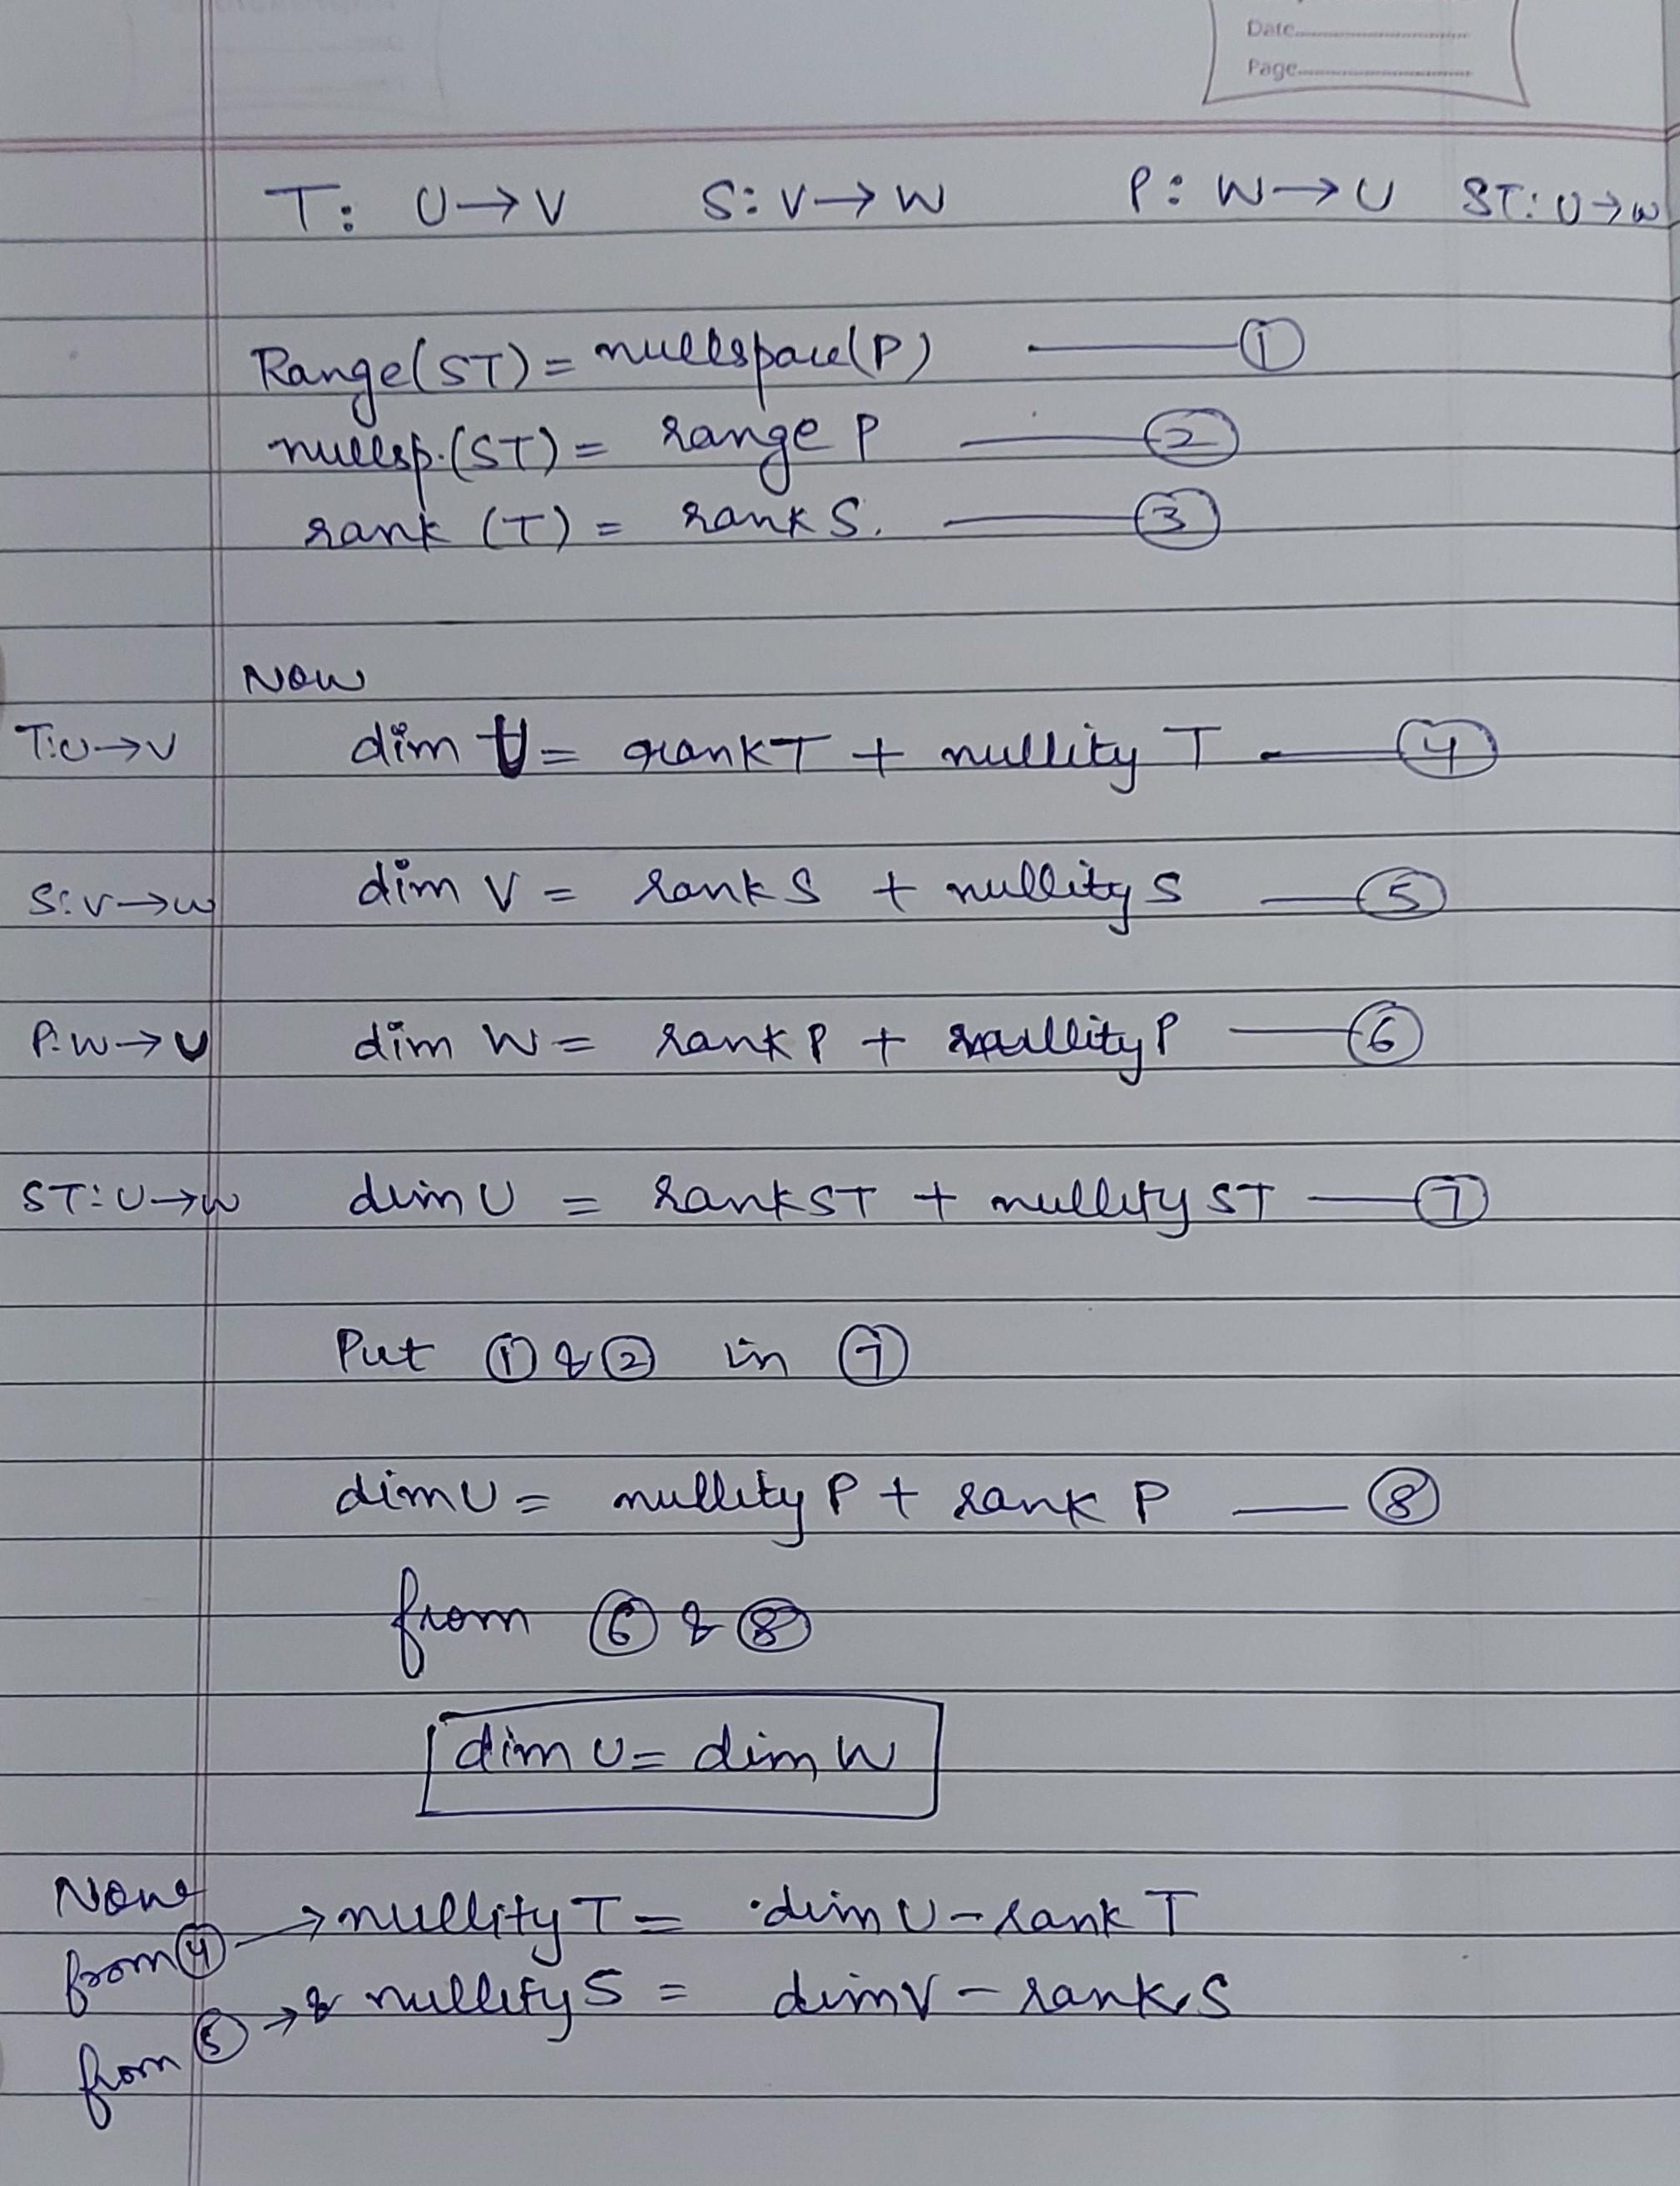 Date
Page
T: U→V S: V→W P: W→U ST: U→W
Range(ST) = nullspace(P) ——— ①
nullsp.(ST) = range P ——— ②
rank (T) = rank S. ——— ③
Now
T:U→V dim U = rank T + nullity T — ④
S:V→W dim V = rank S + nullity S — ⑤
P:W→U dim W = rank P + nullity P — ⑥
ST:U→W dim U = rank ST + nullity ST — ⑦
Put ① & ② in ⑦
dim U = nullity P + rank P — ⑧
from ⑥ & ⑧
dim U = dim W
Now
from ④ → nullity T = dim U - rank T
from ⑤ → & nullity S = dim V - rank S